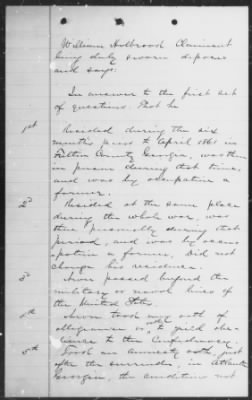 William Holbrook Claimant
being duly sworn deposes
and says:
In answer to the first set
of questions: That he
1st
Resided during the six
months prior to April 1861 in
Fulton County Georgia, was then
in person during that time,
and was by occupation a
farmer.
2d
Resided at the same place
during the whole war, was
there personally during that
period, and was by occu-
pation a farmer. Did not
change his residence.
3d
Never passed beyond the
military or naval lines of
the United States.
4th
Never took any oath of
allegiance or to yield obe-
dience to the Confederacy.
5th
Took an amnesty oath, just
after the surrender, in Atlanta
Georgia, the conditions not